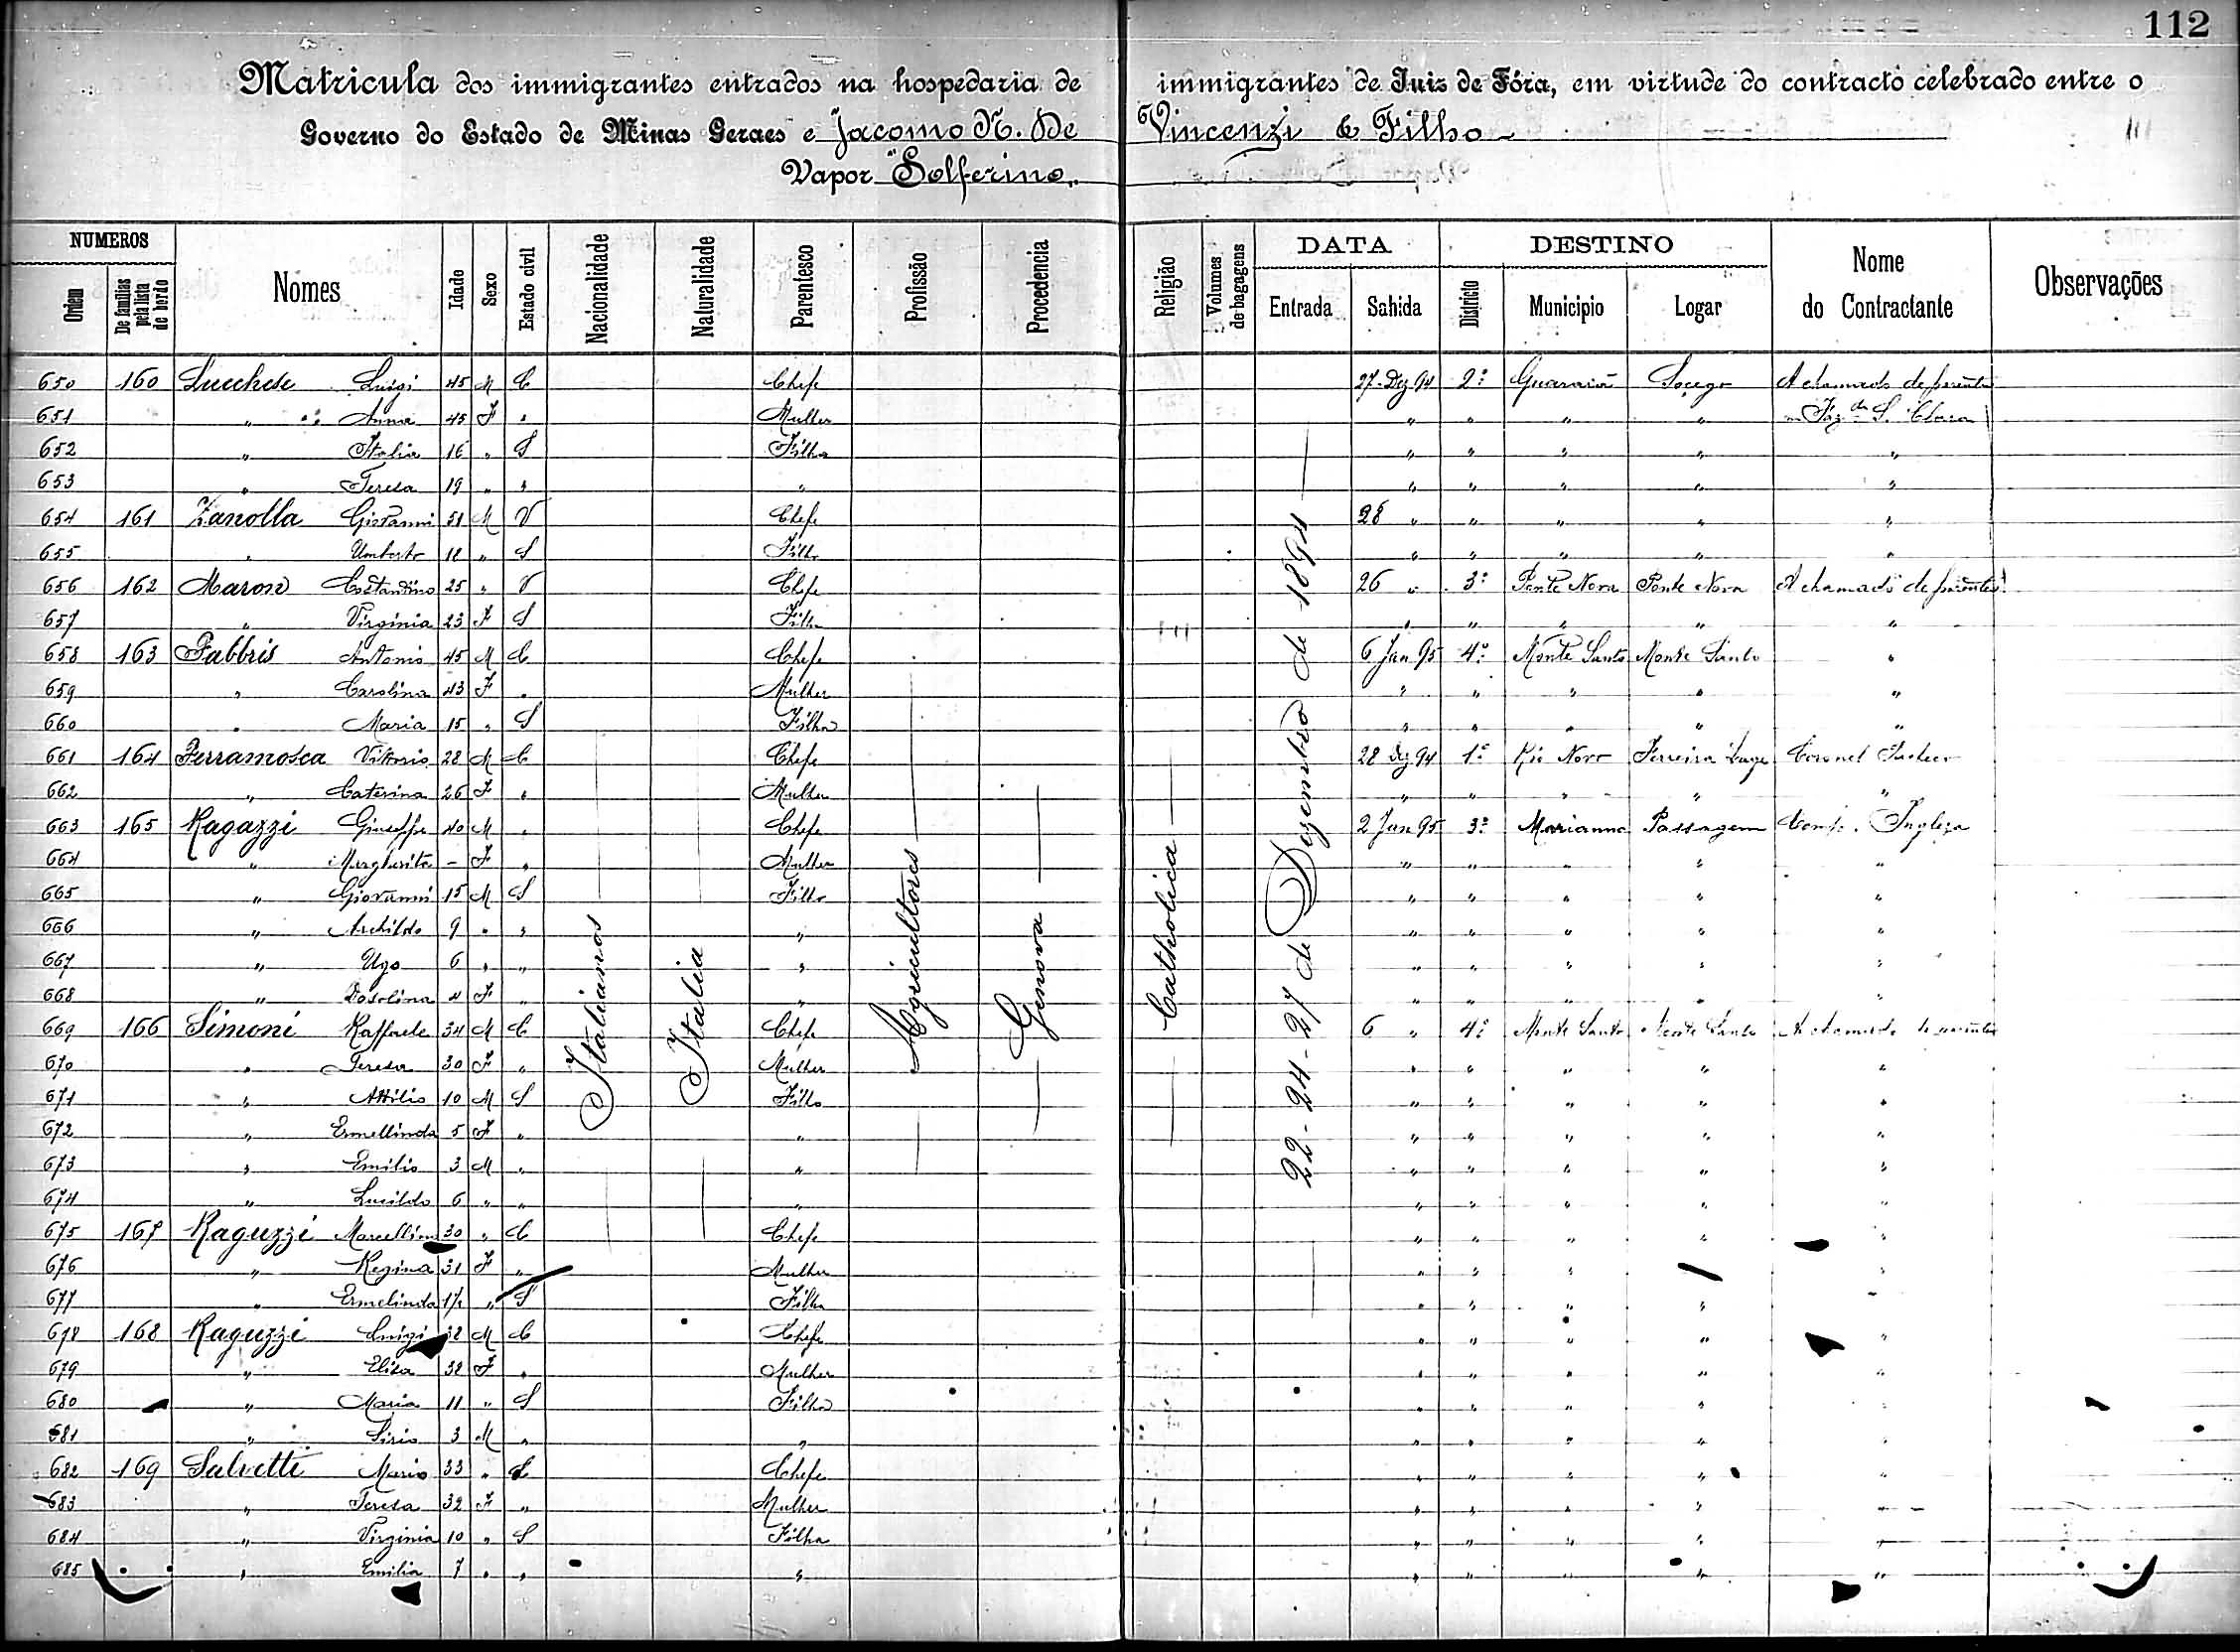 112
Matricula dos immigrantes entrados na hospedaria de immigrantes de Juiz de Fóra, em virtude do contracto celebrado entre o
Governo do Estado de Minas Geraes e Jacomo N. De Vincenzi & Filho
Vapor "Solferino"
NUMEROS
Ordem
De familias pela lista de bordo
Nomes
Idade
Sexo
Estado civil
Nacionalidade
Naturalidade
Parentesco
Profissão
Procedencia
Religião
Volumes de bagagens
DATA
Entrada
Sahida
DESTINO
Districto
Municipio
Logar
Nome do Contractante
Observações
Italianos
Italia
Agricultores
Genova
Catholica
22-24-27 de Dezembro de 1894
650 160 Lucchese Luigi 45 M C Chefe 27-Dez 94 2º Guarará Socego A chamado de parente
651 " Anna 45 F " Mulher " " " " Faz da S. Clara
652 " Italia 16 " S Filha " " " " "
653 " Teresa 19 " " " " " " " "
654 161 Zanolla Giovanni 51 M V Chefe 28 " " " " "
655 " Umberto 12 " S Filho " " " " "
656 162 Maron Costantino 25 " V Chefe 26 " 3º Ponte Nova Ponte Nova A chamado de parentes
657 " Virginia 23 F S Filha " " " " "
658 163 Fabbris Antonio 45 M C Chefe 6 Jan 95 4º Monte Santo Monte Santo "
659 " Carolina 43 F " Mulher " " " " "
660 " Maria 15 " S Filha " " " " "
661 164 Ferramosca Vittorio 28 M C Chefe 28 Dez 94 1º Rio Novo Ferreira Lage Coronel Pacheco
662 " Caterina 26 F " Mulher " " " " "
663 165 Ragazzi Giuseppe 40 M " Chefe 2 Jan 95 3º Marianna Passagem Comp. Ingleza
664 " Margherita - F " Mulher " " " " "
665 " Giovanni 15 M S Filho " " " " "
666 " Archildo 9 " " " " " " " "
667 " Ugo 6 " " " " " " " "
668 " Rosolina 4 F " " " " " " "
669 166 Simoni Raffaele 34 M C Chefe 6 " 4º Monte Santo Monte Santo A chamado de parentes
670 " Teresa 30 F " Mulher " " " " "
671 " Attilio 10 M S Filho " " " " "
672 " Ermellinda 5 F " " " " " " "
673 " Emilio 3 M " " " " " " "
674 " Lucildo 6 " " " " " " " "
675 167 Raguzzi Marcellino 30 " C Chefe " " " " "
676 " Regina 31 F " Mulher " " " " "
677 " Ermelinda 1½ " S Filha " " " " "
678 168 Raguzzi Luigi 32 M C Chefe " " " " "
679 " Elisa 32 F " Mulher " " " " "
680 " Maria 11 " S Filha " " " " "
681 " Sirio 3 M " " " " " " "
682 169 Salvetti Mario 33 " C Chefe " " " " "
683 " Teresa 32 F " Mulher " " " " "
684 " Virginia 10 " S Filha " " " " "
685 " Emilia 7 " " " " " " " "